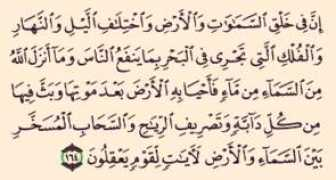 إِنَّ فِي خَلْقِ السَّمَاوَاتِ وَالْأَرْضِ وَاخْتِلَافِ اللَّيْلِ وَالنَّهَارِ
وَالْفُلْكِ الَّتِي تَجْرِي فِي الْبَحْرِ بِمَا يَنفَعُ النَّاسَ وَمَا أَنزَلَ اللَّهُ
مِنَ السَّمَاءِ مِن مَّاءٍ فَأَحْيَا بِهِ الْأَرْضَ بَعْدَ مَوْتِهَا وَبَثَّ فِيهَا
مِن كُلِّ دَابَّةٍ وَتَصْرِيفِ الرِّيَاحِ وَالسَّحَابِ الْمُسَخَّرِ
بَيْنَ السَّمَاءِ وَالْأَرْضِ لَآيَاتٍ لِّقَوْمٍ يَعْقِلُونَ ١٦٤